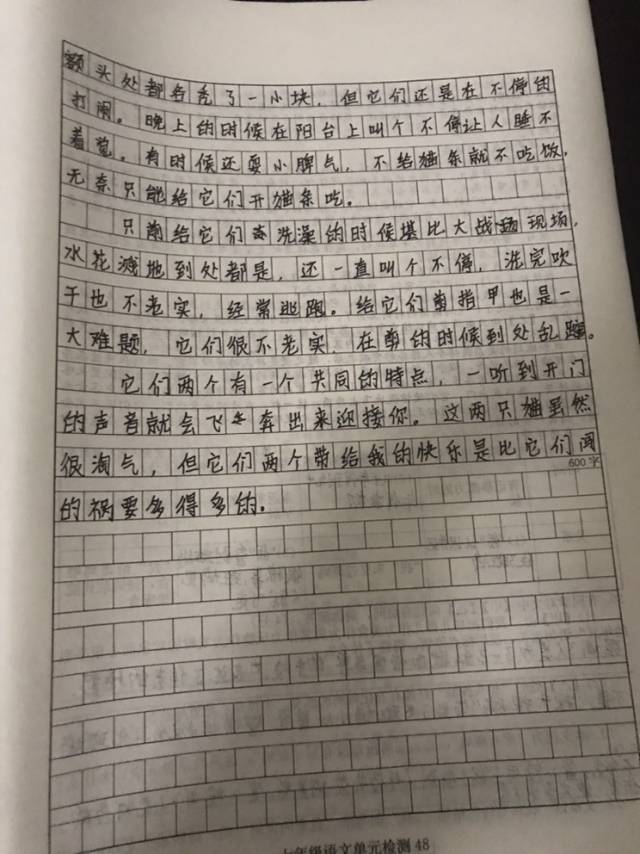 额头处都各秃了一小块，但它们还是在不停的
打闹。晚上的时候在阳台上叫个不停让人睡不
着觉。有时候还耍小脾气，不给猫条就不吃饭，
无奈只能给它们开猫条吃。
只前给它们洗澡的时候堪比大战场现场，
水花溅地到处都是，还一直叫个不停，洗完吹
干也不老实，经常逃跑。给它们剪指甲也是一
大难题，它们很不老实，在剪的时候到处乱蹿。
它们两个有一个共同的特点，一听到开门
的声音就会飞奔出来迎接你。这两只猫虽然
很淘气，但它们两个带给我的快乐是比它们闯
600字
的祸要多得多的。
七年级语文单元检测 48